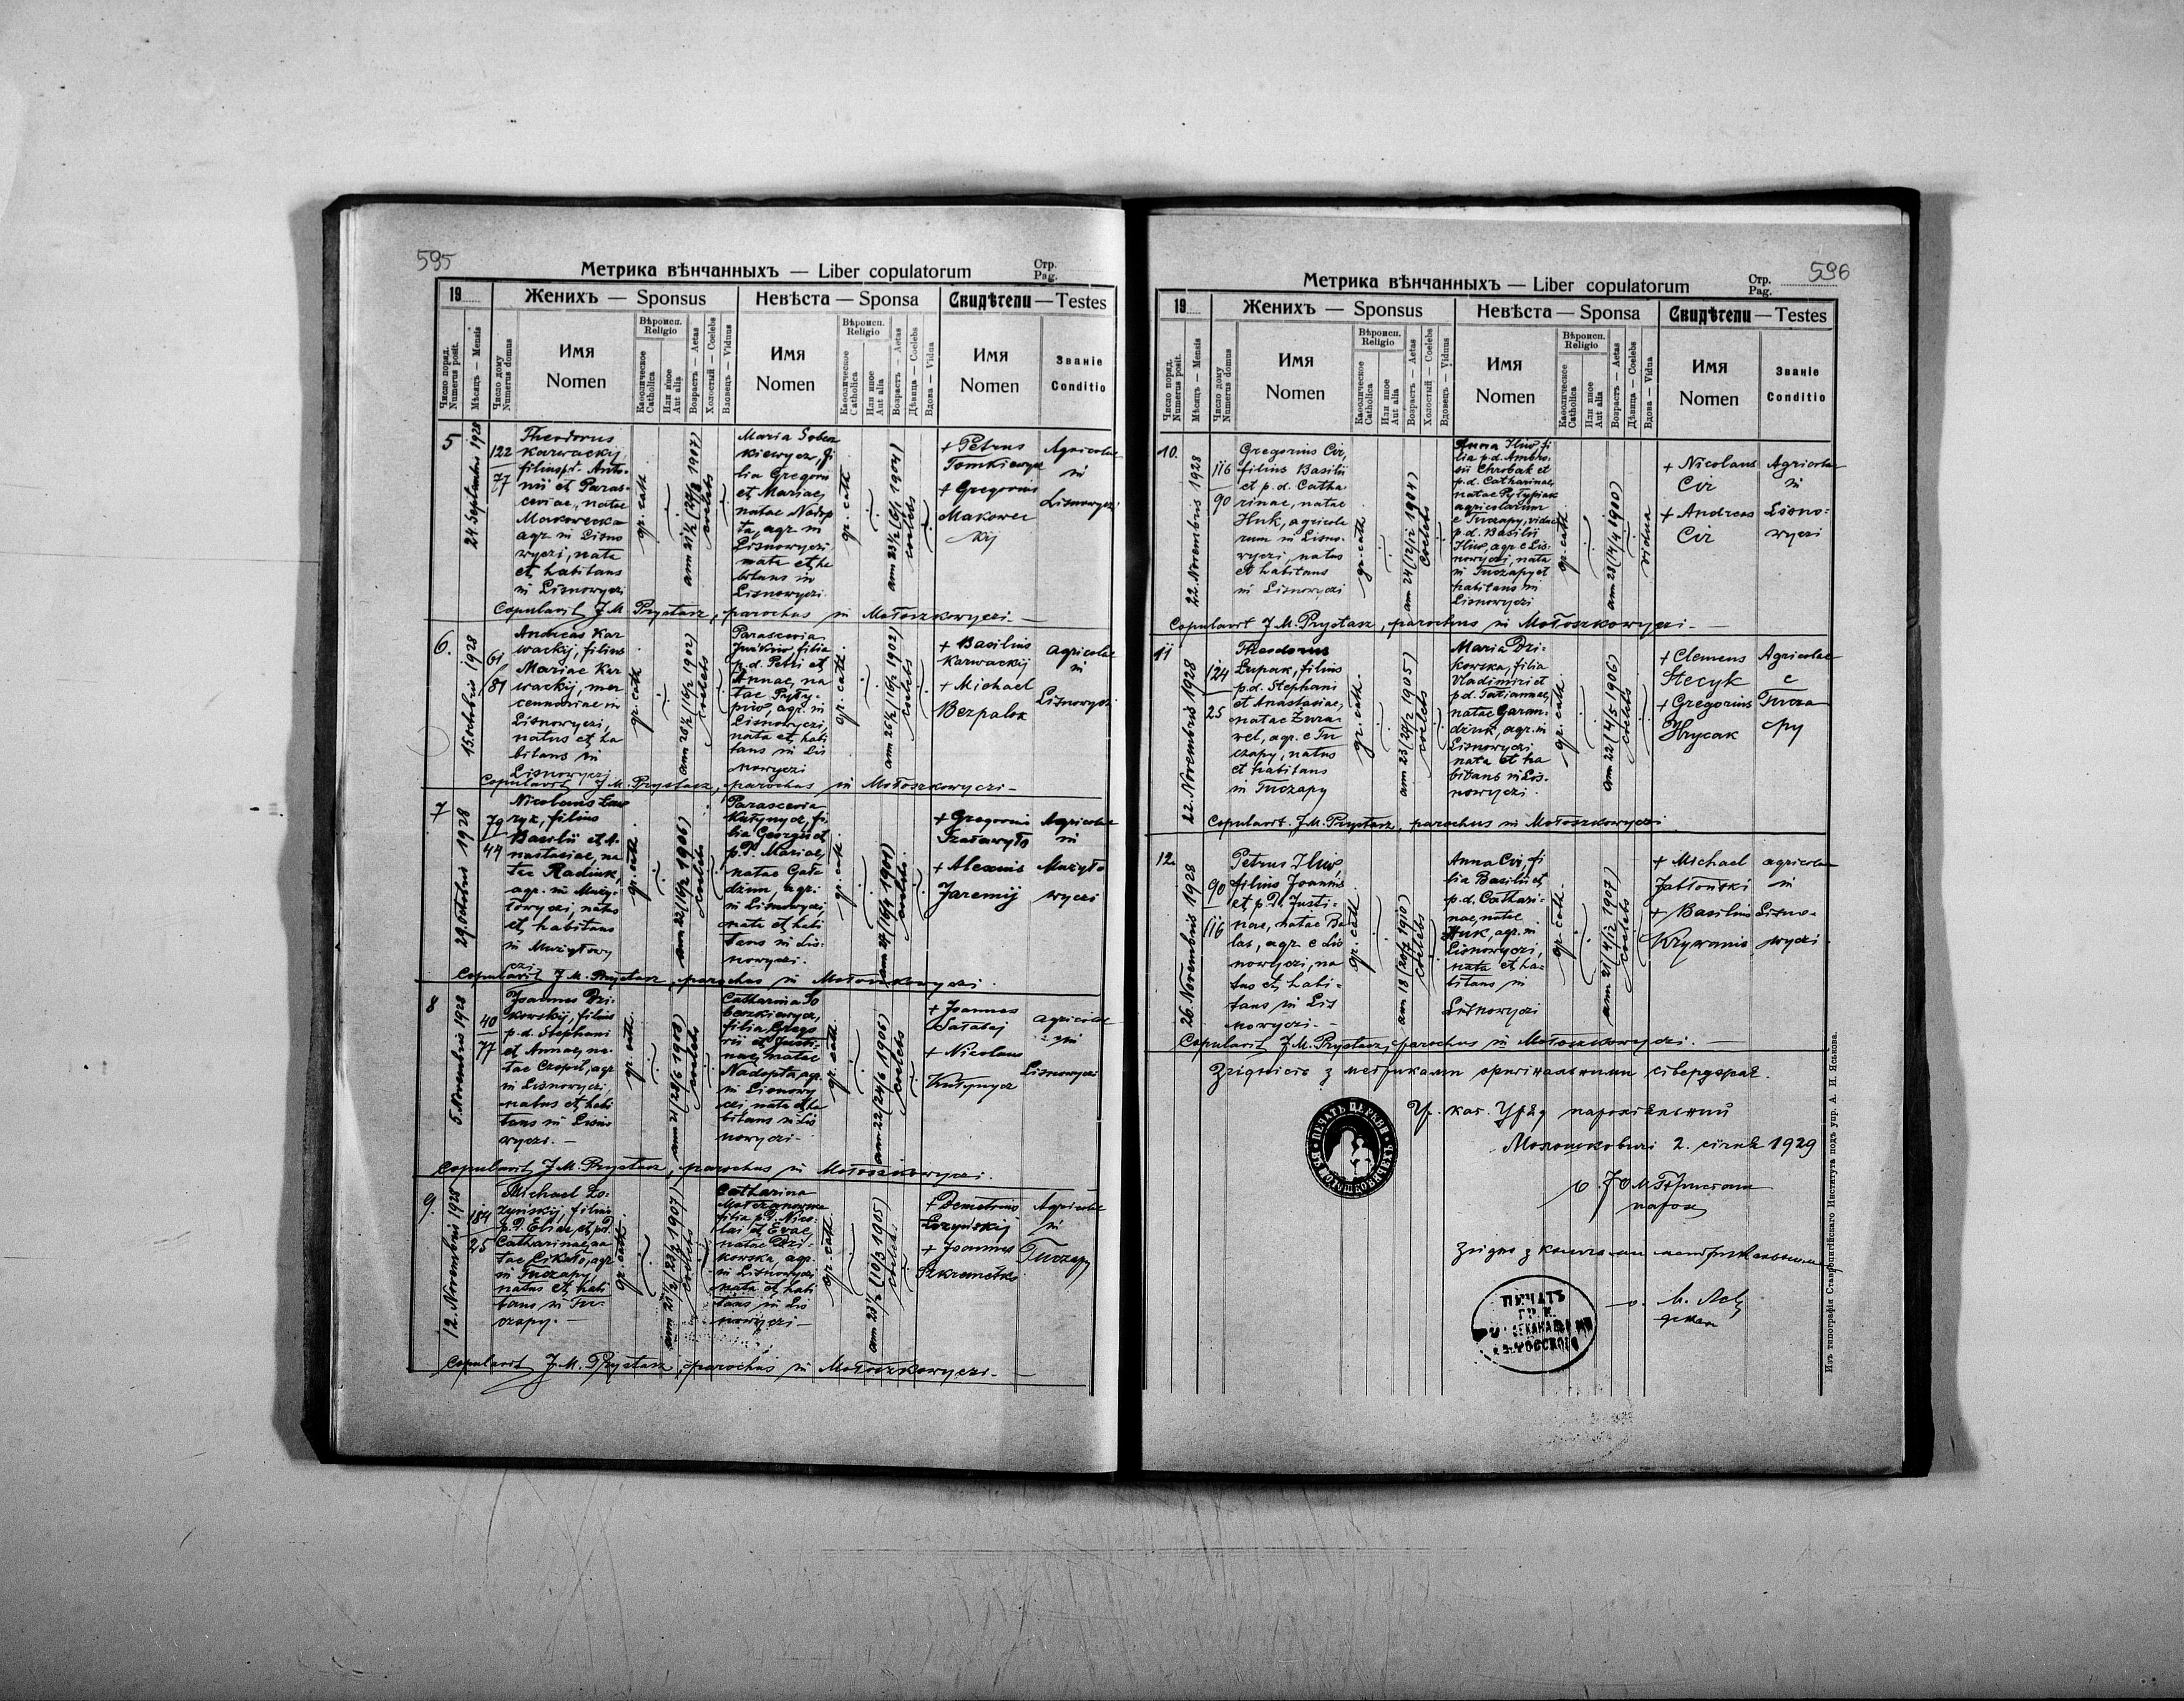 595
Метрика вѣнчанныхъ — Liber copulatorum
Стр.
Pag.
19
Женихъ — Sponsus
Невѣста — Sponsa
Свидѣтели — Testes
Число поряд.
Numerus posit.
Мѣсяць — Mensis
Число дому
Numerus domus
Имя
Nomen
Вѣроисп.
Religio
Каѳолическое
Catholica
Или иное
Aut alia
Возрастъ — Aetas
Холостый — Coelebs
Вдовець — Viduus
Имя
Nomen
Вѣроисп.
Religio
Каѳолическое
Catholica
Или иное
Aut alia
Возрастъ — Aetas
Дѣвица — Coelebs
Вдова — Vidua
Имя
Nomen
Званіе
Conditio
5
24 Septembris 1928
122
77
Theodorus
Karwackij
filius p.d. Anto-
nii et Paras-
ceviae, natae
Makowecka
agr. in Lisno
wyczi, natu
et habitans
in Lisnowyczi
gr. cath
coelebs
Maria Sober
kiewycz, fi
lia Gregorii
et Mariae,
natae Nadop
ta, agr. in
Lisnowyczi
nata et ha
bitans in
Lisnowyczi.
gr. cath
coelebs
+ Petrus
Tomkiewycz
+ Gregorius
Makowec
kij
Agricolae
in
Lisnowyczi
Copulavit J.M. Prystasz, parochus in Mołoszkowyczi.—
6.
15. octobris 1928
61
81
Andreas Kar
wackij, filius
Mariae Kar
wackij, mer
cennariae in
Lisnowyczi,
natus et ha
bitans in
Lisnowyczi
gr. cath
coelebs
Parascevia
Jurkiw, filia
p.d. Petri et
Annae, na
tae Pyły-
piw, agr. in
Lisnowyczi,
nata et habi
tans in Lis
nowyczi
gr. cath.
coelebs
+ Basilius
Karwackij
+ Michael
Bezpalok
agricolae
in
Lisnowyczi
Copulavit J.M. Prystasz, parochus in Mołoszkowyczi—
7
29. octobris 1928
79
44
Nicolaus Law
ryk, filius
Basilii et A-
nastasiae, na
tae Radiuk,
agr. in Muży-
łowyczi, natus
et habitans
in Mużyłowy
czi
gr. cath.
ann 22 (16/12 1906)
coelebs
Parascevia
Kułynycz, fi
lia Georgii et
p.d. Mariae,
natae Gała
dżun, agr.
in Lisnowyczi,
nata et habi
tans in Lis-
nowyczi.
gr. cath.
coelebs
+ Gregorius
+ Alexius
Jaremij
Agricolae
in
Mużyło
wyczi
Copulavit J.M. Prystasz, parochus in Mołoszkowyczi.
8
5 Novembris 1928
40
77
Joannes Dzi-
kowskij, filius
p.d. Stephani
et Annae, na-
tae Czopil, agr
in Lisnowyczi,
natus et habi
tans in Lisno
wyczi.—
gr. cath.
coelebs
Catharina So
berkiewycz,
filia Grego
rii et Justi-
nae, natae
Nadopta, agr.
in Lisnowy
czi, nata et ha
bitans in Lis
nowyczi—
gr. cath.
ann 22 (24/6 1906)
coelebs
+ Joannes
Sałabaj
+ Nicolaus
Kułynycz
agricolae
in
Lisnowyczi
Copulavit J.M. Prystasz, parochus in Mołoszkowyczi.
9.
12. Novembris 1928
184
25
Michael Ło-
zynskij, filius
p.d. Eliae, et p.d.
Catharinae, na
tae Cikało, agr
in Tuczapy,
natus et habi
tans in Tu-
czapy.—
gr. cath
coelebs
Catharina
filia p.d. Nico-
lai et Evae,
natae Dzi-
kowska, agr.
in Lisnowyczi
nata et habi
tans in Lis
nowyczi—
gr. cath
coelebs
+ Demetrius
Łozynskij
+ Joannes
Szkrametko
Agricolae
in
Tuczapy
Copulavit J.M. Prystasz, parochus in Mołoszkowyczi—
596
Метрика вѣнчанныхъ — Liber copulatorum
Стр.
Pag.
19
Женихъ — Sponsus
Невѣста — Sponsa
Свидѣтели — Testes
Число поряд.
Numerus posit.
Мѣсяць — Mensis
Число дому
Numerus domus
Имя
Nomen
Вѣроисп.
Religio
Каѳолическое
Catholica
Или иное
Aut alia
Возрастъ — Aetas
Холостый — Coelebs
Вдовець — Viduus
Имя
Nomen
Вѣроисп.
Religio
Каѳолическое
Catholica
Или иное
Aut alia
Возрастъ — Aetas
Дѣвица — Coelebs
Вдова — Vidua
Имя
Nomen
Званіе
Conditio
10.
22. Novembris 1928
116
90
Gregorius Cir,
filius Basilii
et p.d. Catha
rinae, natae
Huk, agricola
rum in Lisno-
wyczi, natus
et habitans
in Lisnowyczi
gr. cath
ann 24 (12/12 1904)
coelebs
Anna Iliw, fi
lia p.d. Ambro-
sii Chrobak et
p.d. Catharinae,
natae Pyłypiak
agricolarum
e Tuczapy, vidua
p.d. Basilii
Iliw, agr. e Lis-
nowyczi, nata
in Tuczapy et
habitans in
Lisnowyczi
gr. cath
ann 28 (14/4 1900)
vidua
+ Nicolaus
Cir
+ Andreas
Cir
Agricolae
in
Lisno-
wyczi
Copulavit J.M. Prystasz, parochus in Mołoszkowyczi.—
11
22. Novembris 1928
124
25
Theodorus
Łupak, filius
p.d. Stephani
et Anastasiae,
natae Żura-
wel, agr. e Tu
czapy, natus
et habitans
in Tuczapy
gr. cath.
ann 23 (24/2 1905)
coelebs
Maria Dzi-
kowska, filia
Vladimiri et
p.d. Tatiannae,
natae Garan-
dziuk, agr. in
Lisnowyczi
nata et ha
bitans in Lis-
nowyczi.
gr. cath.
ann 22 (4/5 1906)
coelebs
+ Clemens
Stecyk
+ Gregorius
Hrycak
Agricolae
e
Tucza
py
Copulavit. J.M. Prystasz, parochus in Mołoszkowyczi
12.
26. Novembris 1928
90
116
Petrus Iliw,
filius Joannis
et p.d. Justi-
nae, natae Ba
las, agr. e Lis
nowyczi, na
tus et habi-
tans in Lis
nowyczi.—
gr. cath.
ann 18 (20/7 1910)
coelebs
Anna Cir, fi
lia Basilii et
p.d. Cathari-
nae, natae
Huk, agr. in
Lisnowyczi,
nata et ha-
bitans in
Lisnowyczi
gr. cath.
ann 21 (4/12 1907)
coelebs
+ Michael
Jabłonski
+ Basilius
Krywanis
agricolae
in
Lisno-
wyczi
Copulavit J.M. Prystasz, parochus in Mołoszkowyczi.—
Згідність з метриками оригінальними стверджає.
Гр. кат. Уряд парохіяльний
Молошковичі 2. січня 1929
парох
ПЕЧАТЬ ЦЕРКВИ
Згідно з книгами метрикальними
декан
ПЕЧАТЬ
ГР. К.
Изъ типографіи Ставропигійскаго Института подъ упр. А. И. Яськова.